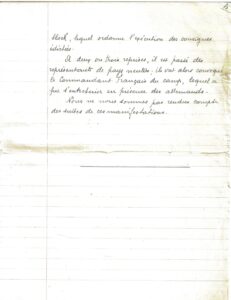 block, lequel ordonne l'exécution des consignes
édictées.
A deux ou trois reprises, il est passé des
représentants de pays neutres. Ils ont alors convoqué
le Commandant Français du camp, lequel a
pu s'entretenir en présence des allemands.
Nous ne nous sommes pas rendus compte
des suites de ces manifestations.